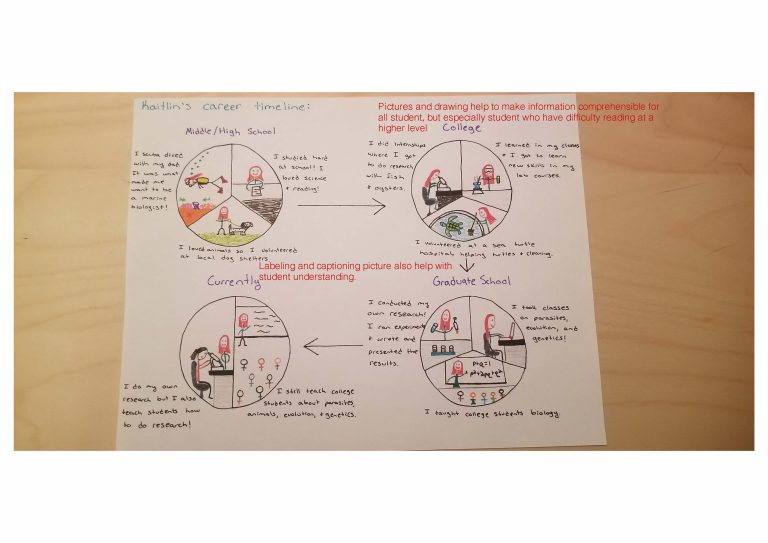 Kaitlin's career timeline:
Pictures and drawing help to make information comprehensible for
all student, but especially student who have difficulty reading at a
higher level
Middle/High School
I scuba dived
with my dad.
It was what
made me
want to be
a marine
biologist!
I studied hard
at school! I
loved science
+ reading!
I loved animals so I volunteered
at local dog shelters.
College
I did internships
where I got
to do research
with fish
+ oysters.
I learned in my classes
+ I got to learn
new skills in my
lab courses.
I volunteered at a sea turtle
hospital: helping turtles + cleaning.
Labeling and captioning picture also help with
student understanding.
Graduate School
I conducted my
own research!
I ran experiments
+ wrote and
presented the
results.
I took classes
on parasites,
evolution, and
genetics!
p+q=1
I taught college students biology.
Currently
I do my own
research but I also
teach students how
to do research!
I still teach college
students about parasites,
animals, evolution, + genetics.